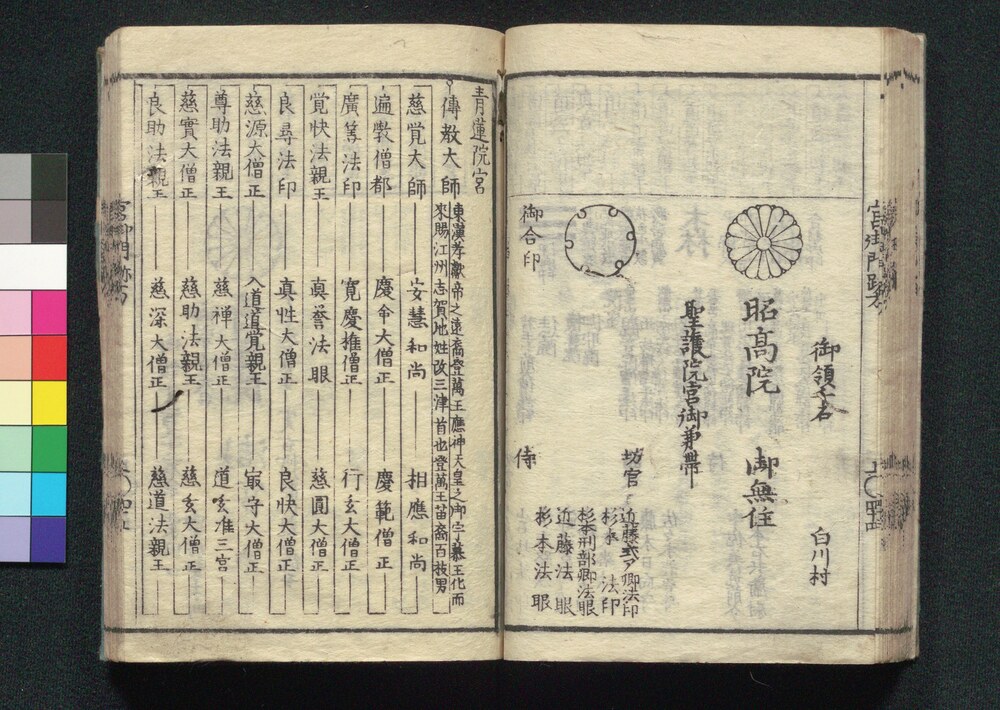 御領千石
白川村
昭高院 御無住
聖護院宮御兼帶
御合印
坊官
近藤式部卿法印
杉本 法印
杉本刑部卿法眼
侍
近藤法眼
杉本法眼
青蓮院宮
傳教大師
東漢孝獻帝之遠裔登萬王應神天皇之御宇慕王化而
來賜江州志賀地姓改三津首也登萬王苗裔百枝男
慈覺大師 安慧和尚 相應和尚
遍斅僧都 慶命大僧正 慶範僧正
廣筭法印 寛慶権僧正 行玄大僧正
覚快法親王 真誉法眼 慈圓大僧正
良尋法印 真性大僧正 良快大僧正
慈源大僧正 入道道覚親王 最守大僧正
尊助法親王 慈禅大僧正 道玄准三宮
慈實大僧正 慈助法親王 慈玄大僧正
良助法親王 慈深大僧正 慈道法親王
宮御門跡方